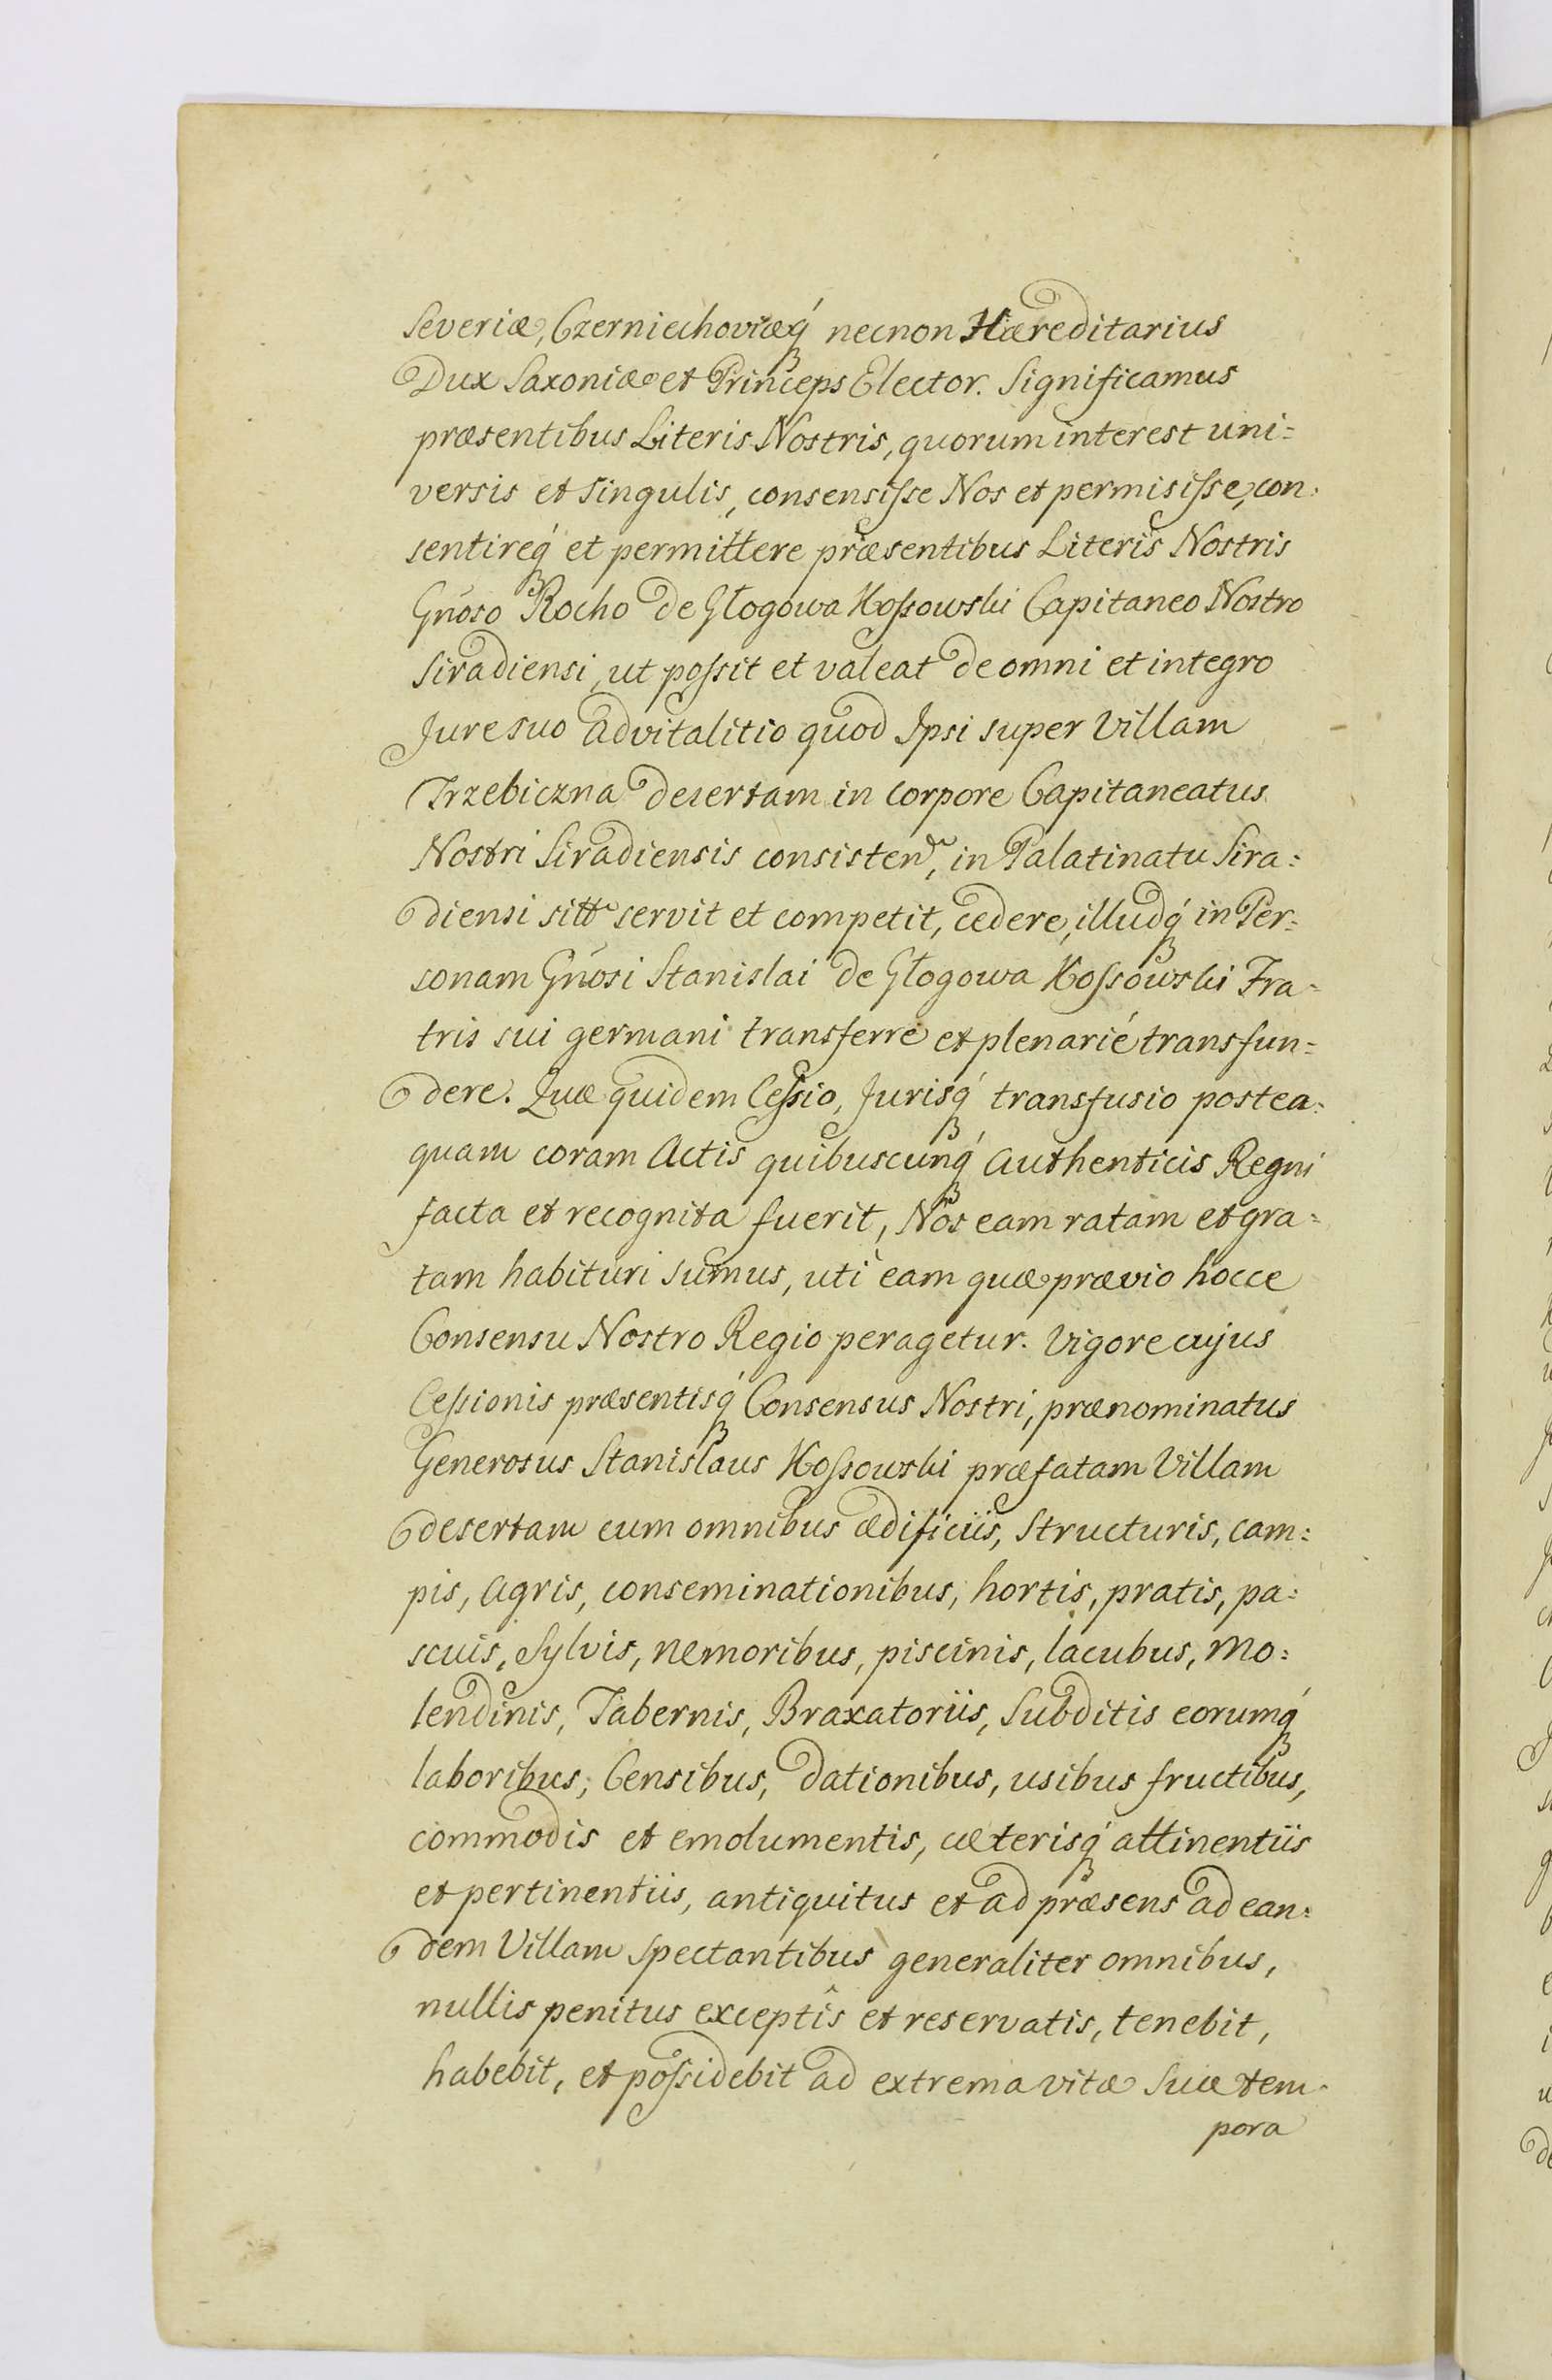 Severiæ, Czerniechoviæq́ necnon Hæreditarius
Dux Saxoniæ et Princeps Elector. Significamus
præsentibus Literis Nostris, quorum interest uni=
versis et singulis, consensiſse Nos et permisiſse, con=
sentireq́ et permittere præsentibus Literis Nostris
Gnoso Rocho de Głogowa Koſsowski Capitaneo Nostro
Siradiensi, ut poſsit et valeat de omni et integro
Jure suo advitalitio quod Ipsi super Villam
Trzebiczna desertam in corpore Capitaneatus
Nostri Siradiensis consisten, in Palatinatu Sira=
diensi sitt servit et competit, cedere, illudq́ in Per=
sonam Gnosi Stanislai de Głogowa Koſsowski Fra=
tris sui germani transferre et plenarié transfun=
dere. Quæ quidem Ceſsio, Jurisq́ transfusio postea=
quam coram Actis quibuscunq́ Authenticis Regni
facta et recognita fuerit, Nos eam ratam et gra=
tam habituri sumus, uti eam quæ prævio hocce
Consensu Nostro Regio peragetur. Vigore cujus
Ceſsionis præsentisq́ Consensus Nostri, prænominatus
Generosus Stanislaus Koſsowski præfatam Villam
desertam cum omnibus ædificiis, structuris, cam=
pis, agris, conseminationibus, hortis, pratis, pa=
scuis, Sylvis, nemoribus, piscinis, lacubus, Mo=
lendinis, Tabernis, Braxatoriis, Subditis eorumq́
laboribus, Censibus, dationibus, usibus fructibus,
commodis et emolumentis, cæterisq́ attinentiis
et pertinentiis, antiquitus et ad præsens ad ean=
dem Villam spectantibus generaliter omnibus,
nullis penitus exceptîs et reservatis, tenebit,
habebit, et poſsidebit ad extrema vitæ suæ tem=
pora